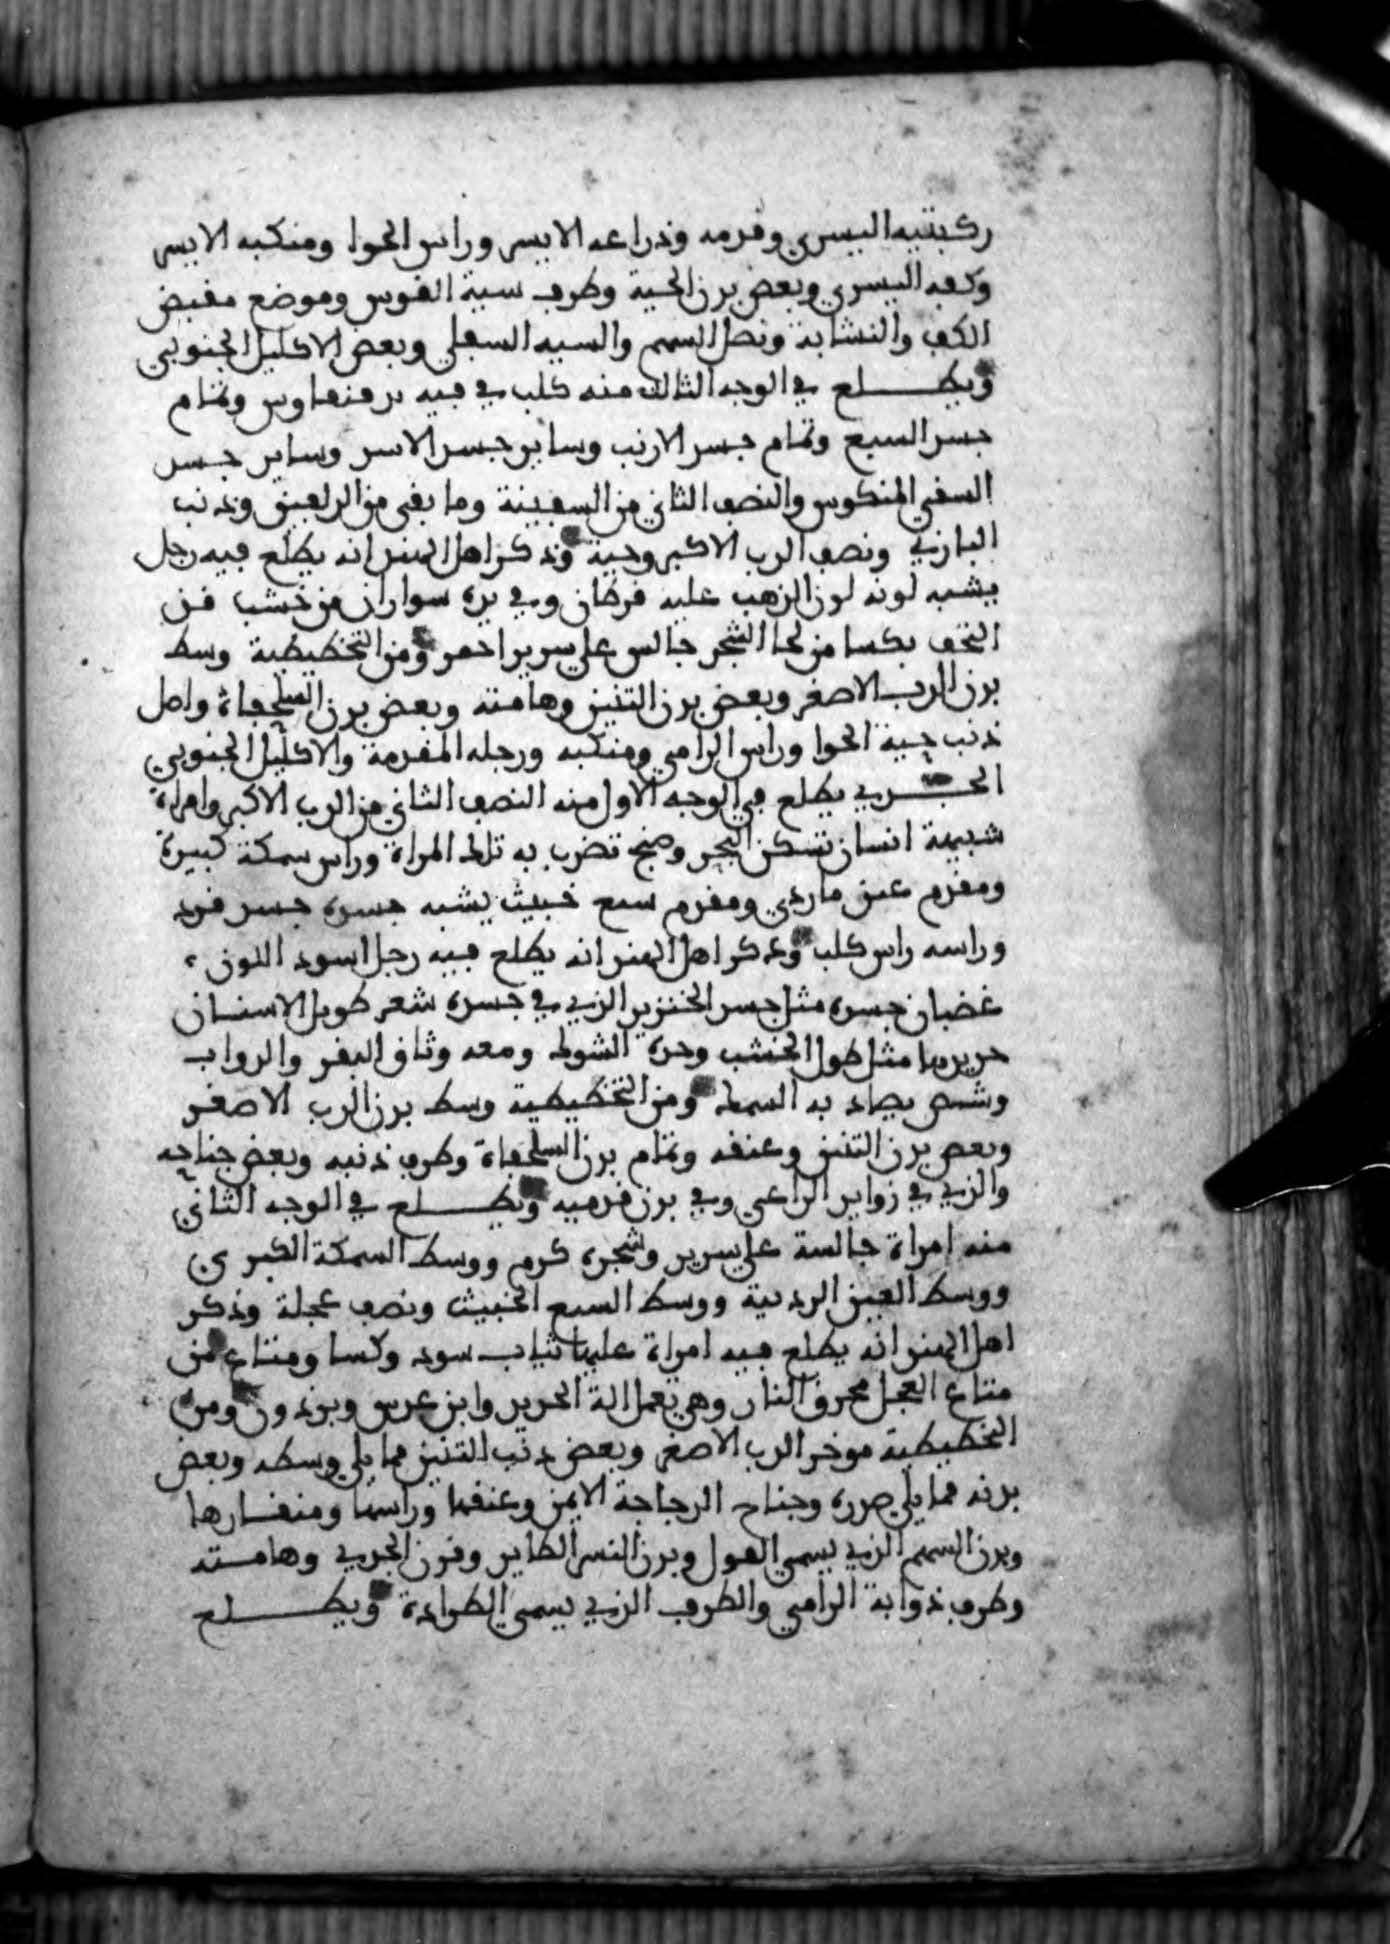 ركبتيه اليسرى وقدمه وذراعه الايسر وراس الحوا ومنكبه الايسر
وكفه اليسرى وبعض بدن الحية وطرف سية القوس وموضع مقبض
الكف والنشابة ونصل السهم والسيه السفلى وبعض الاكليل الجنوبي
ويطلع في الوجه الثالث منه كلب في فيه وتمام
جسد السبع وتمام جسد الارنب وساير جسد الاسد وساير جسد
المنكوس والنصف الثاني من السفينة وما بقى من وذنب
البازي ونصف الدب الاكبر وحية وذكر اهل الهند انه يطلع فيه رجل
يشبه لونه لون الذهب عليه قرطان وفي يده سواران من خشب قد
التحف بكسا من لحا الشجر جالس على سرير احمر ومن التخطيطية وسط
بدن الدب الاصغر وبعض بدن التنين وهامته وبعض بدن السلحفاة واصل
ذنب حية الحوا وراس الرامي ومنكبه ورجله المقدمة والاكليل الجنوبي
الجدي يطلع في الوجه الاول منه النصف الثاني من الدب الاكبر وامراة
شبيهة انسان تسكن البحر وصنج تضرب به تلك المراة وراس سمكة كبيرة
ومقدم عين ماردي ومقدم سبع خبيث يشبه جسده جسد قرد
وراسه راس كلب وذكر اهل الهند انه يطلع فيه رجل اسود اللون
غضبان جسده مثل جسد الخنزير الذي في جسده شعر طويل الاسنان
حديدها مثل طول الخشب وحدة الشوك ومعه وثاق البقر والدواب
وشص يصاد به السمك ومن التخطيطية وسط بدن الدب الاصغر
وبعض بدن التنين وعنقه وتمام بدن السلحفاة وطرف ذنبه وبعض جناحه
والذي في زواير الراعي وفي بدن قدميه ويطلع في الوجه الثاني
منه امراة جالسة على سرير وشجرة كرم ووسط السمكة الكبرى
ووسط العين الرديه ووسط السبع الخبيث ونصف عجلة وذكر
اهل الهند انه يطلع فيه امراة عليها ثياب سود وكسا ومتاع من
متاع العجل محرق النار وهي تعمل الة الحديد وابن عرس وبرذون ومن
التخطيطية موخر الدب الاصغر وبعض ذنب التنين مما يلي وسطه وبعض
بدنه مما يلي صدره وجناح الدجاجة الايمن وعنقها وراسها ومنقارها
وبدن السهم الذي يسمى الغول وبدن النسر الطاير وقرن الجدي وهامته
وطرف ذوابة الرامي والطرف الذي يسمى الطرادة ويطلع